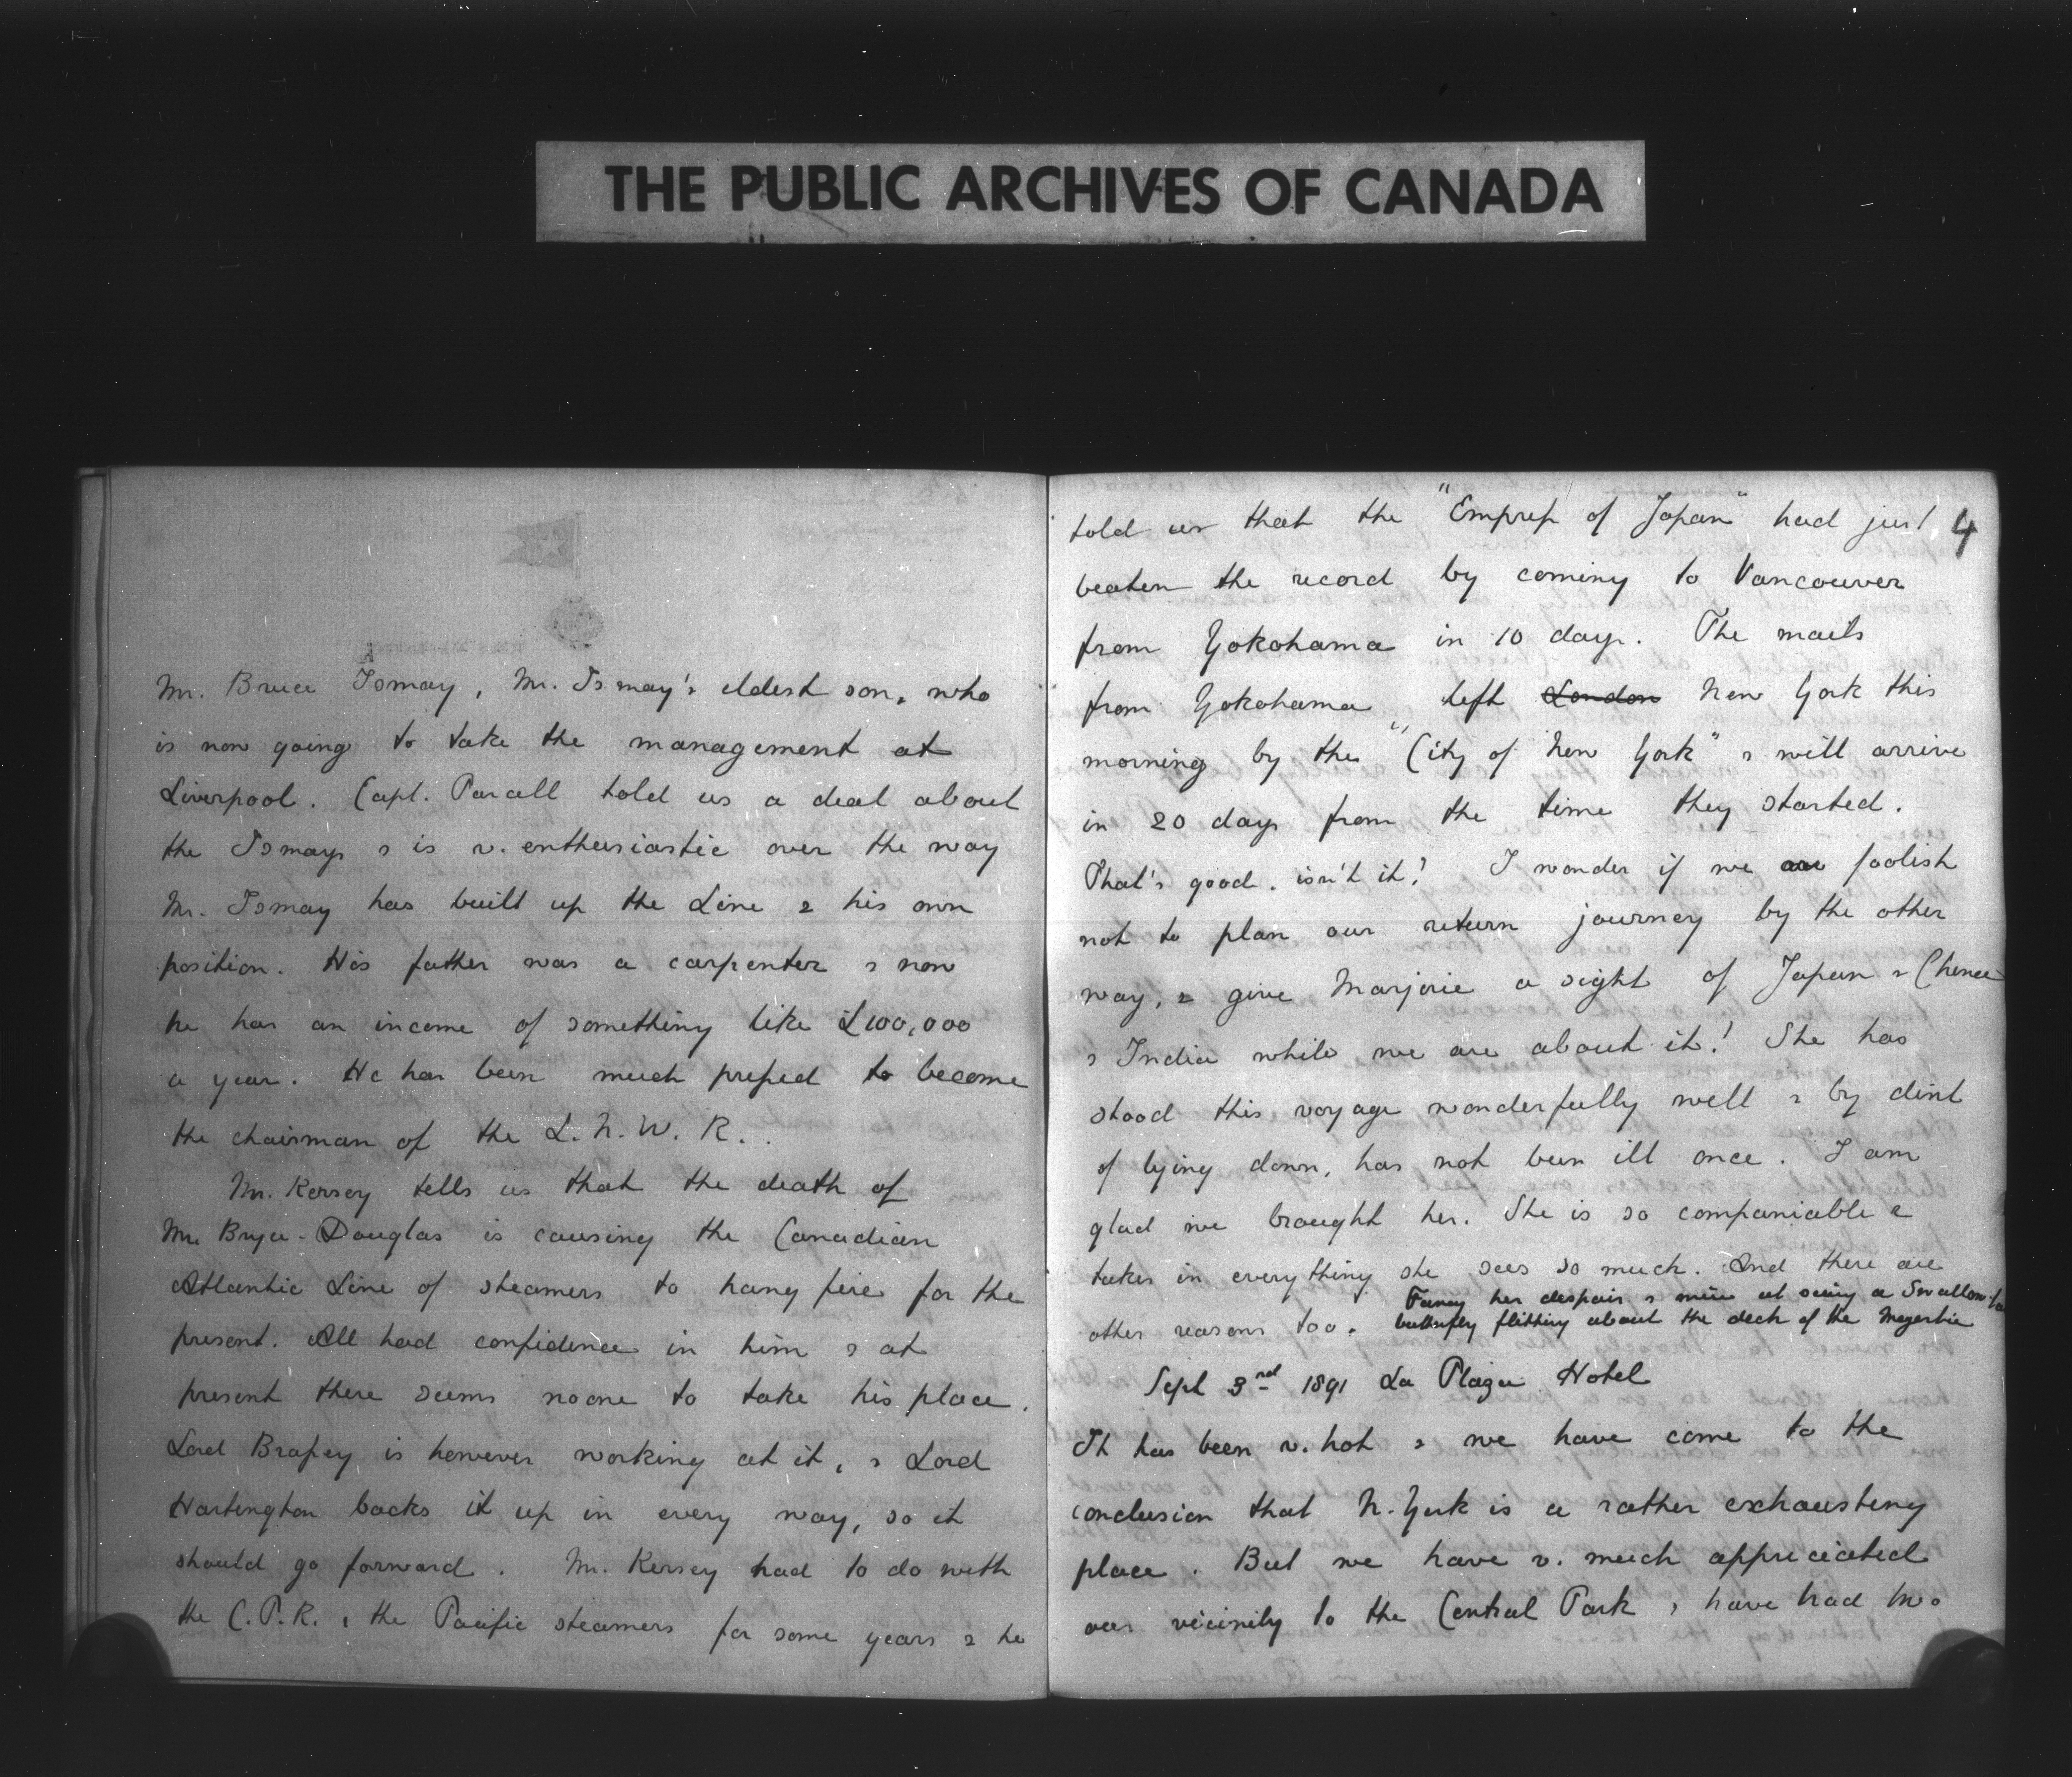 THE PUBLIC ARCHIVES OF CANADA
Mr. Bruce Ismay, Mr. Ismay's eldest son, who
is now going to take the management at
Liverpool. Capt. Parsell told us a deal about
the Ismays & is v. enthusiastic over the way
Mr. Ismay has built up the Line & his own
position. His father was a carpenter & now
he has an income of something like £100,000
a year. He has been much pressed to become
the chairman of the L. N. W. R.
Mr. Kersey tells us that the death of
Mr. Bryce-Douglas is causing the Canadian
Atlantic Line of steamers to hang fire for the
present. All had confidence in him & at
present there seems no one to take his place.
Lord Brassey is however working at it, & Lord
Hartington backs it up in every way, so it
should go forward. Mr. Kersey had to do with
the C.P.R. & the Pacific steamers for some years & he
4
told us that the "Empress of Japan" had just
beaten the record by coming to Vancouver
from Yokohama in 10 days. The mails
from Yokohama left London New York this
morning by the "City of New York" & will arrive
in 20 days from the time they started.
That's good, isn't it! I wonder if we are foolish
not to plan our return journey by the other
way, & give Marjorie a sight of Japan & China
& India while we are about it! She has
stood this voyage wonderfully well & by dint
of lying down, has not been ill once. I am
glad we brought her. She is so companiable &
takes in everything she sees so much. And there are
other reasons too. Fancy her despair & mine at seeing a Swallow-tail
butterfly flitting about the deck of the Majestic
Sept 3rd 1891 La Plaza Hotel
It has been v. hot & we have come to the
conclusion that N. York is a rather exhausting
place. But we have v. much appreciated
our vicinity to the Central Park & have had two